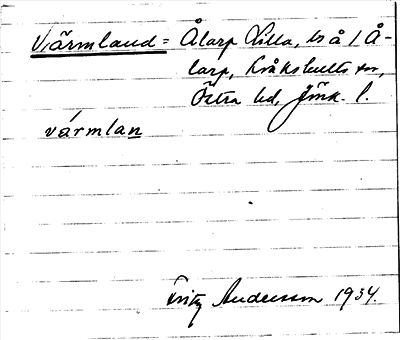 Värmland = Ålarp Lilla, ts å / Å-
larp, Bråkstults sn,
Östra hd, Jönk. l.
vármlan
Fritz Andersson 1934.